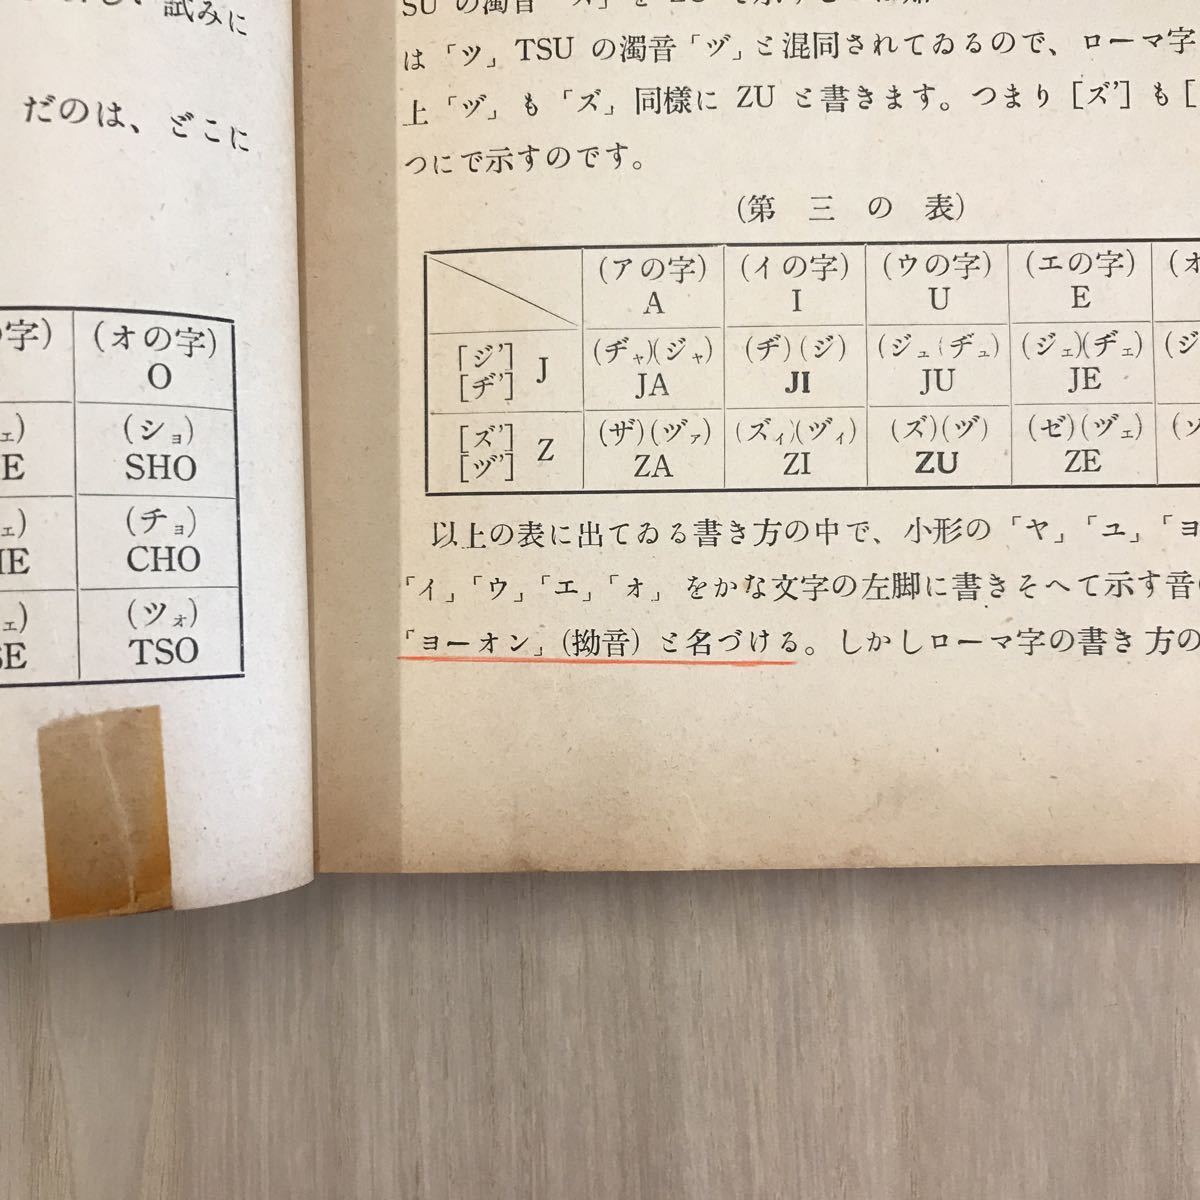 試みに
だのは、どこに
の字) (オの字)
O
ェ) (ショ)
E SHO
ェ) (チョ)
HE CHO
ェ) (ツォ)
SE TSO
は「ツ」TSU の濁音「ヅ」と混同されてゐるので、ローマ字
上「ヅ」も「ズ」同様に ZU と書きます。つまり [ズ'] も [
つにで示すのです。
(第 三 の 表)
(アの字) (イの字) (ウの字) (エの字) (オ
A I U E
[ジ'] [ヂ'] J (ヂャ)(ジャ) (ヂ)(ジ) (ジュ(ヂュ) (ジェ)(ヂェ) (ジ
JA JI JU JE
[ズ'] [ヅ'] Z (ザ)(ヅァ) (ズィ)(ヅィ) (ズ)(ヅ) (ゼ)(ヅェ) (ゾ
ZA ZI ZU ZE
以上の表に出てゐる書き方の中で、小形の「ヤ」「ユ」「ヨ
「ィ」「ゥ」「ェ」「ォ」をかな文字の左脚に書きそへて示す音
「ヨーオン」(拗音) と名づける。しかしローマ字の書き方の